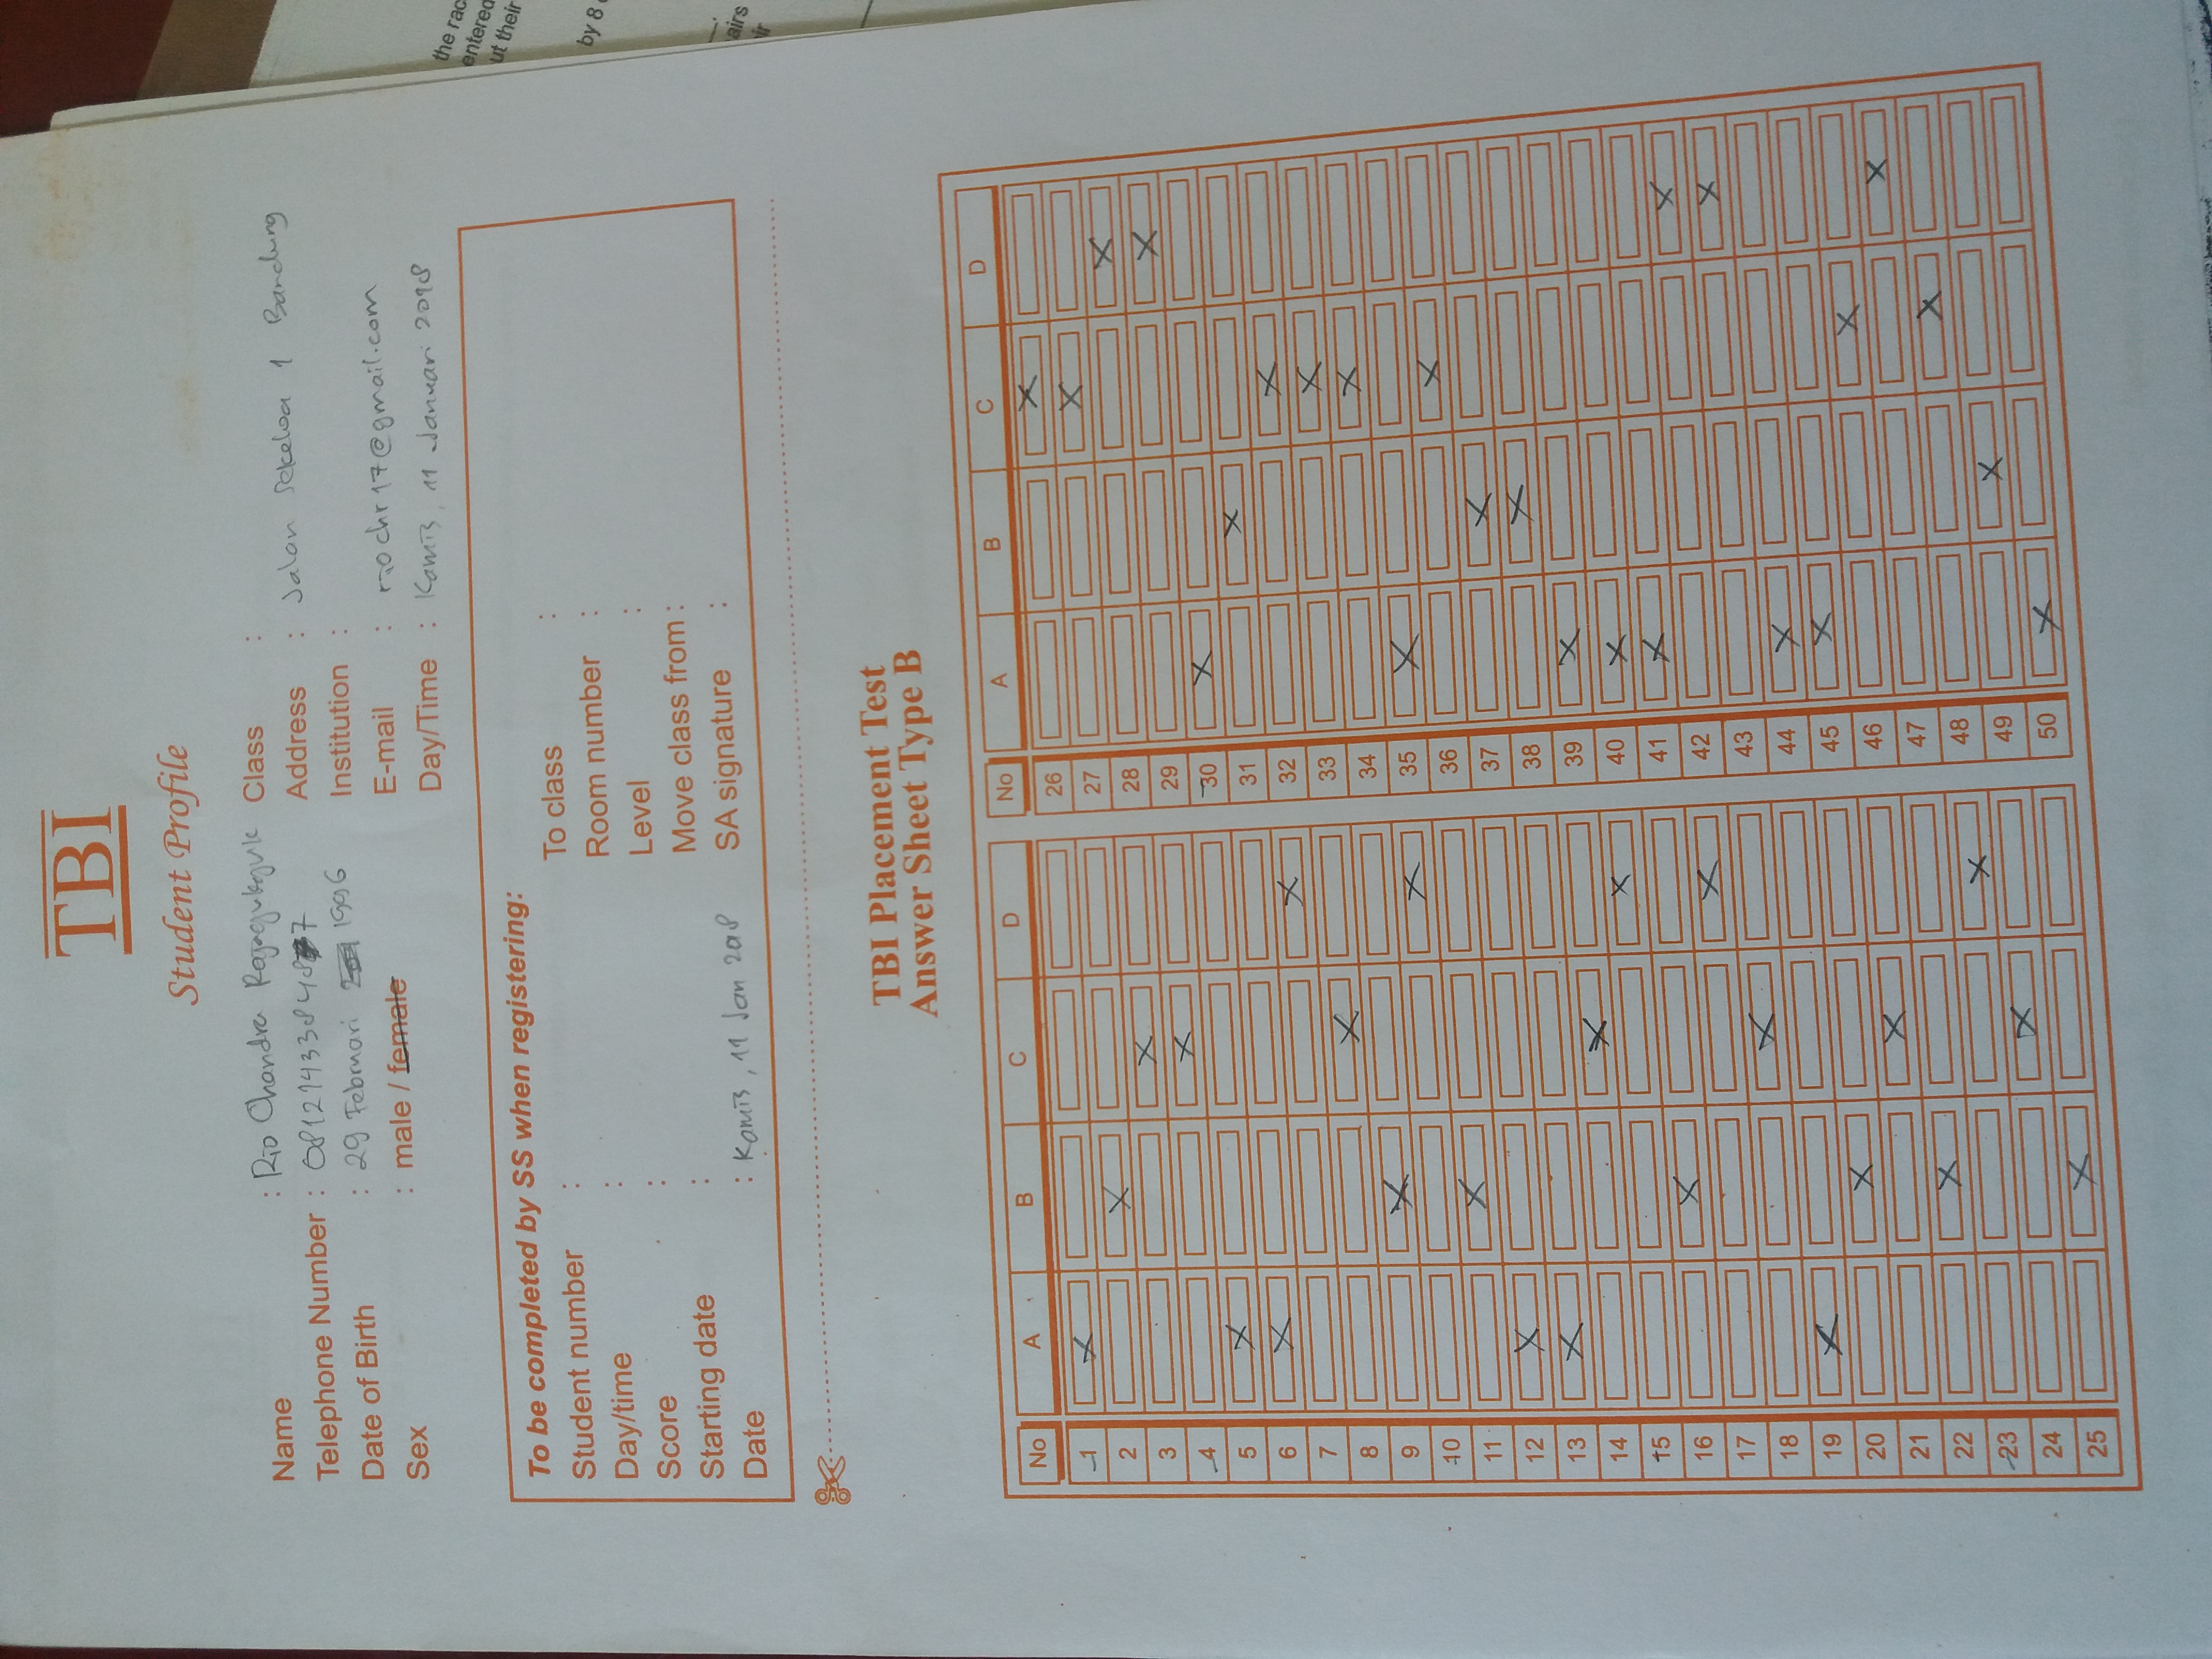 TBI
Student Profile
Name : Rio Chandra Rajagukguk
Telephone Number : 
Date of Birth : 29 Februari 1996
Sex : male / female
Class :
Address : Jalan Sekeloa 1 Bandung
Institution :
E-mail : riochr17@gmail.com
Day/Time : Kamis, 11 Januari 2018
To be completed by SS when registering:
Student number :
Day/time :
Score :
Starting date :
Date : Kamis, 11 Jan 2018
To class :
Room number :
Level :
Move class from :
SA signature :
TBI Placement Test
Answer Sheet Type B
No A B C D
1
2
3
4
5
6
7
8
9
10
11
12
13
14
15
16
17
18
19
20
21
22
23
24
25
No A B C D
26
27
28
29
30
31
32
33
34
35
36
37
38
39
40
41
42
43
44
45
46
47
48
49
50
the rac
entered
ut their
by 8
airs
ir